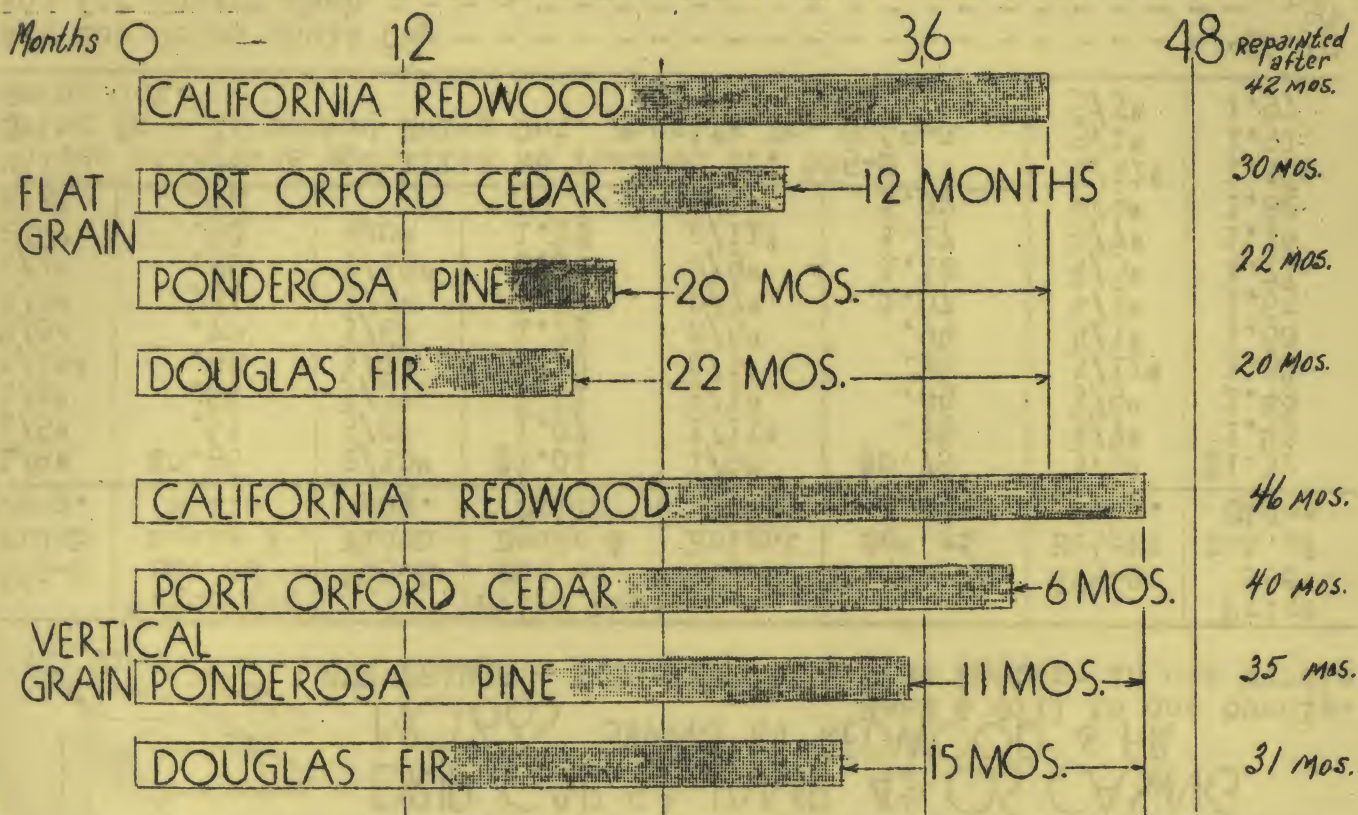 Months 0 - 12 36 48 Repainted after
CALIFORNIA REDWOOD 42 MOS.
FLAT GRAIN
PORT ORFORD CEDAR 12 MONTHS 30 MOS.
PONDEROSA PINE 20 MOS. 22 MOS.
DOUGLAS FIR 22 MOS. 20 MOS.
CALIFORNIA REDWOOD 46 MOS.
PORT ORFORD CEDAR 6 MOS. 40 MOS.
VERTICAL GRAIN
PONDEROSA PINE 11 MOS. 35 MOS.
DOUGLAS FIR 15 MOS. 31 MOS.